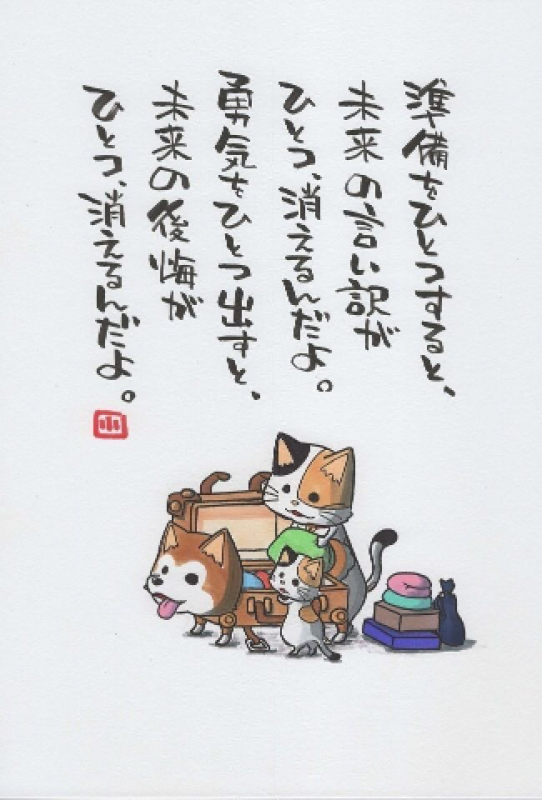 準備をひとつすると、
未来の言い訳が
ひとつ、消えるんだよ。
勇気をひとつ出すと、
未来の後悔が
ひとつ、消えるんだよ。
小